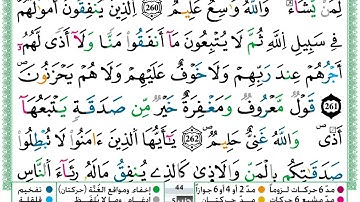 لِمَن يَشَآءُ وَٱللَّهُ وَٰسِعٌ عَلِيمٌ 260 ٱلَّذِينَ يُنفِقُونَ أَمْوَٰلَهُمْ
فِى سَبِيلِ ٱللَّهِ ثُمَّ لَا يُتْبِعُونَ مَآ أَنفَقُوا۟ مَنًّا وَلَآ أَذًى لَّهُمُۥٓ
أَجْرُهُمْ عِندَ رَبِّهِمْ وَلَا خَوْفٌ عَلَيْهِمْ وَلَا هُمْ يَحْزَنُونَ
261 قَوْلٌ مَّعْرُوفٌ وَمَغْفِرَةٌ خَيْرٌ مِّن صَدَقَةٍ يَتْبَعُهَآ
أَذًى وَٱللَّهُ غَنِىٌّ حَلِيمٌ 262 يَٰٓأَيُّهَا ٱلَّذِينَ ءَامَنُوا۟ لَا تُبْطِلُوا۟
صَدَقَٰتِكُم بِٱلْمَنِّ وَٱلْأَذَىٰ كَٱلَّذِى يُنفِقُ مَالَهُۥ رِئَآءَ ٱلنَّاسِ
مدّ 6 حركات لزوماً مدّ 2 أو 4 أو 6 جوازاً 44 إخفاء ومواقع الغُنّة (حركتان) تفخيم
مدّ مشبع 6 حركات مدّ حركتان إدغام وما لا يُلفظ قلقلة